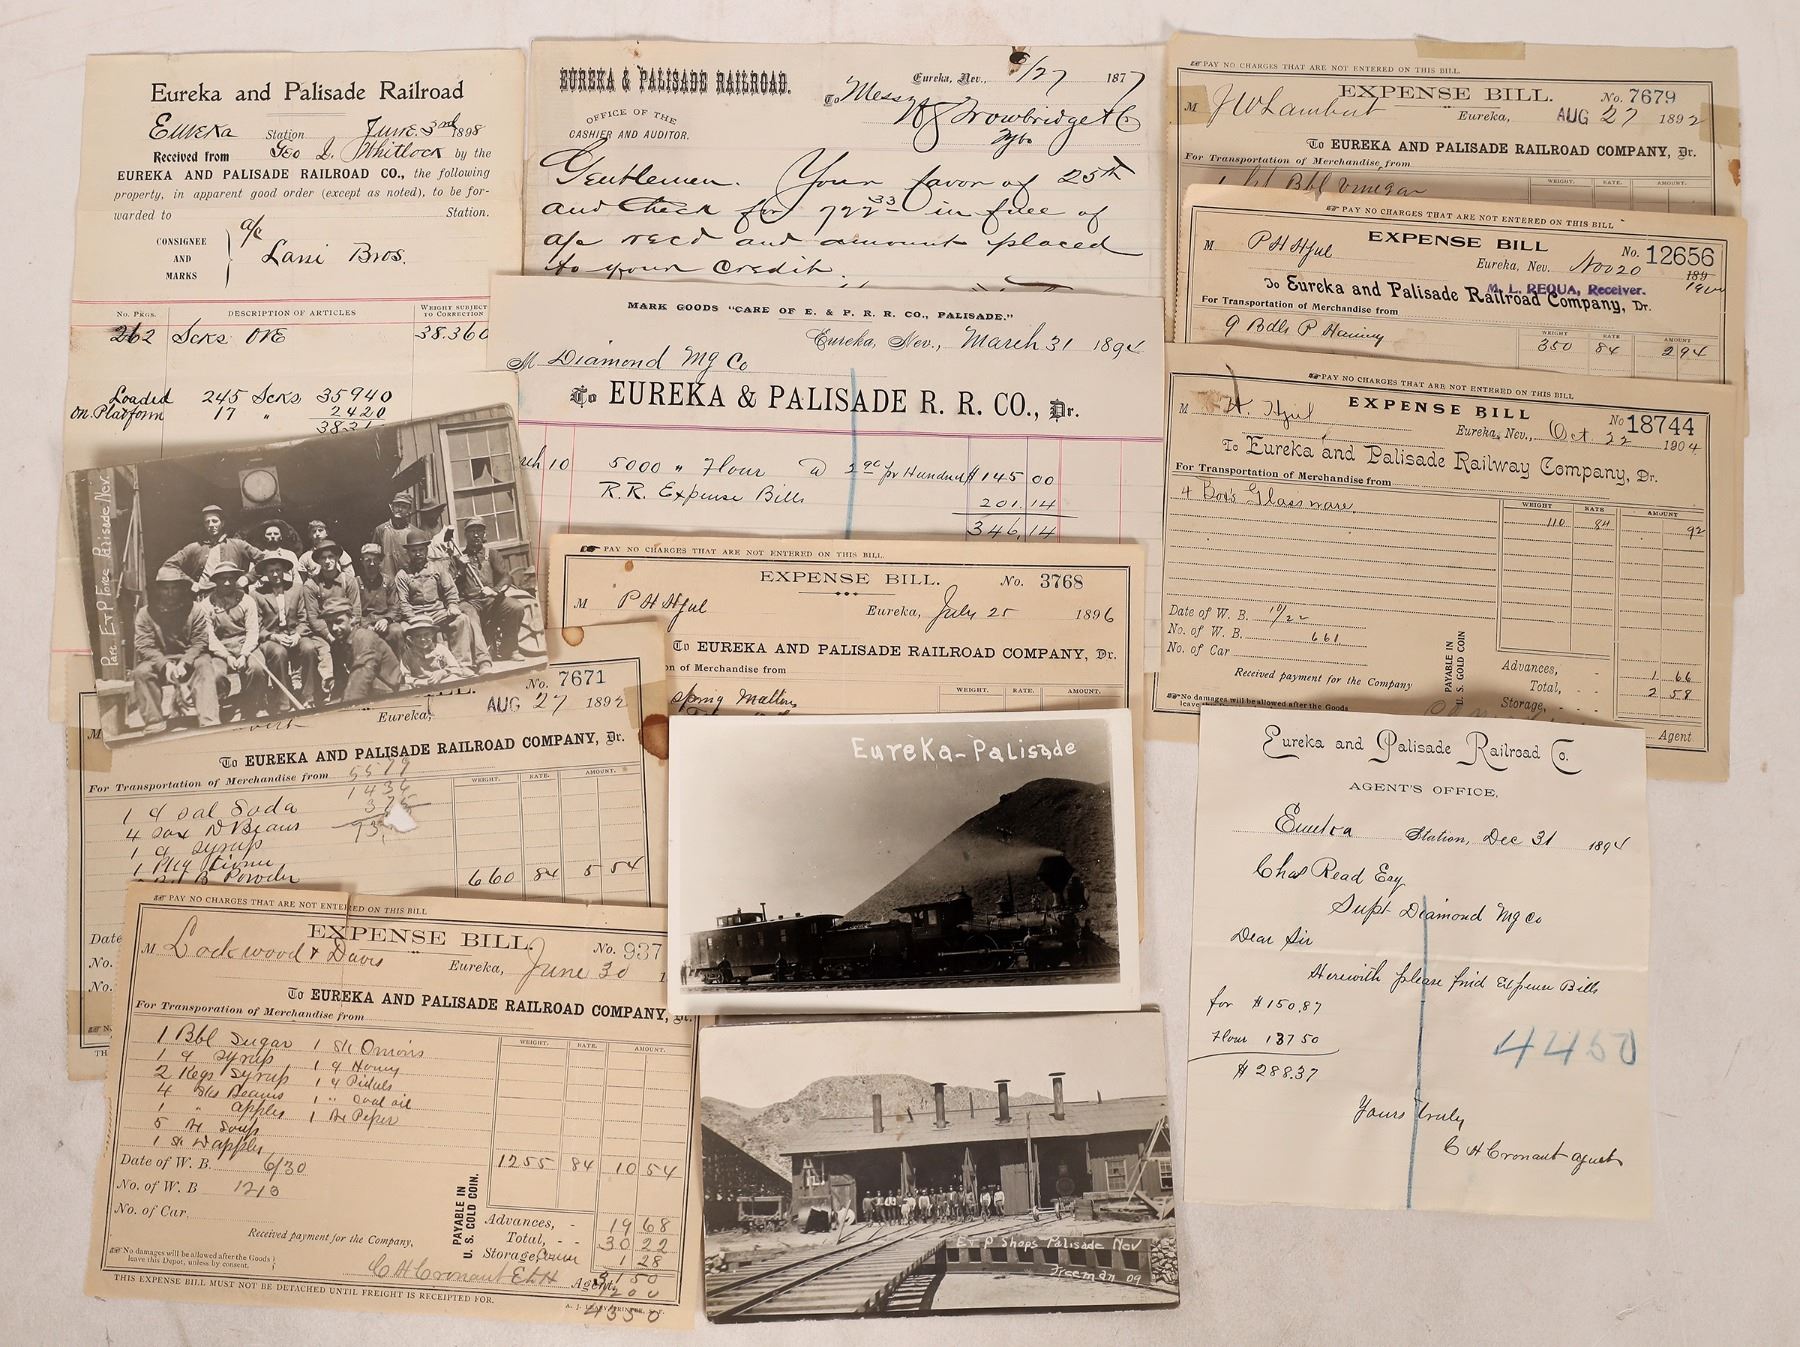 Eureka and Palisade Railroad
Eureka Station June 3rd 1898
Received from Geo Whitlock by the
EUREKA AND PALISADE RAILROAD CO., the following
property, in apparent good order (except as noted), to be for-
warded to Station.
CONSIGNEE
AND
MARKS
a/c
Lani Bros.
No. PKGS. DESCRIPTION OF ARTICLES WEIGHT SUBJECT TO CORRECTION
262 Scks ORE 38.360
Loaded 245 Scks 35940
On Platform 17 " 2420
EUREKA & PALISADE RAILROAD.
OFFICE OF THE
CASHIER AND AUDITOR.
Eureka, Nev., 6/27 1877
To Messrs Trowbridge & Co
Gentlemen. Your favor of 25th
and check for 722 33 in full of
a/c recd and amount placed
to your credit.
MARK GOODS "CARE OF E. & P. R. R. CO., PALISADE."
Eureka, Nev., March 31 1894
M Diamond Mg Co
To EUREKA & PALISADE R. R. CO., Dr.
rch 10 5000 " Flour @ 2 90 pr Hundred $145 00
R.R. Expense Bills 201.14
346.14
PAY NO CHARGES THAT ARE NOT ENTERED ON THIS BILL.
EXPENSE BILL. No. 7679
M J W Lambert Eureka, AUG 27 1892
To EUREKA AND PALISADE RAILROAD COMPANY, Dr.
For Transportation of Merchandise from
WEIGHT. RATE. AMOUNT.
Bbl Vinegar
PAY NO CHARGES THAT ARE NOT ENTERED ON THIS BILL
EXPENSE BILL No. 12656
M P H Hjul Eureka, Nev. Nov 20 189
190
M. L. REQUA, Receiver.
To Eureka and Palisade Railroad Company, Dr.
For Transportation of Merchandise from
WEIGHT RATE AMOUNT
9 Bdls P 350 84 2 94
PAY NO CHARGES THAT ARE NOT ENTERED ON THIS BILL
EXPENSE BILL No 18744
M H. Hjul Eureka, Nev., Oct. 22 1904
To Eureka and Palisade Railway Company, Dr.
For Transportation of Merchandise from
WEIGHT RATE AMOUNT
4 Boxs Glassware 110 84 92
Date of W. B. 10/22
No. of W. B. 661
No. of Car
Received payment for the Company
PAYABLE IN
U. S. GOLD COIN
Advances, 1 66
Total, 2 58
Storage,
No damages will be allowed after the Goods
Agent
Pare E&P Force Palisade Nev.
PAY NO CHARGES THAT ARE NOT ENTERED ON THIS BILL.
EXPENSE BILL. No. 3768
M P H Hjul Eureka, July 25 1896
To EUREKA AND PALISADE RAILROAD COMPANY, Dr.
n of Merchandise from
WEIGHT. RATE. AMOUNT.
Spring Mattress
No. 7671
Eureka, AUG 27 1892
To EUREKA AND PALISADE RAILROAD COMPANY, Dr.
For Transportation of Merchandise from 5579
WEIGHT. RATE. AMOUNT.
1 c Sal Soda 1436
4 sax N Beans
1 c syrup
B Powder 660 84 5 54
Date
No.
No.
PAY NO CHARGES THAT ARE NOT ENTERED ON THIS BILL
EXPENSE BILL. No. 937
M Lockwood & Davis Eureka, June 30 1
To EUREKA AND PALISADE RAILROAD COMPANY, Dr.
For Transporation of Merchandise from
WEIGHT. RATE. AMOUNT.
1 Bbl Sugar 1 Sk Onions
1 c syrup 1 c Honey
2 Kegs Syrup 1 c Pickels
4 Sks Beans 1 " Coal oil
1 " apples 1 Bx Peper
5 Bx Soap
1 Sk D apples
1255 84 10 54
Date of W. B. 6/30
No. of W. B 1213
No. of Car
Received payment for the Company,
PAYABLE IN
U. S. GOLD COIN.
Advances, 19 68
Total, 30 22
Storage, 1 28
C H Cronaut Agent,
4350
No damages will be allowed after the Goods
leave this Depot, unless by consent.
THIS EXPENSE BILL MUST NOT BE DETACHED UNTIL FREIGHT IS RECEIPTED FOR.
Eureka-Palisade
E & P Shops Palisade Nev
Freeman 09
Eureka and Palisade Railroad Co.
AGENT'S OFFICE,
Eureka Station, Dec 31 1894
Chas Read Esq
Supt Diamond Mg Co
Dear Sir
Herewith please find Expense Bills
for $150.87
Flour 137 50
$288.37
4450
Yours truly
C H Cronaut agent